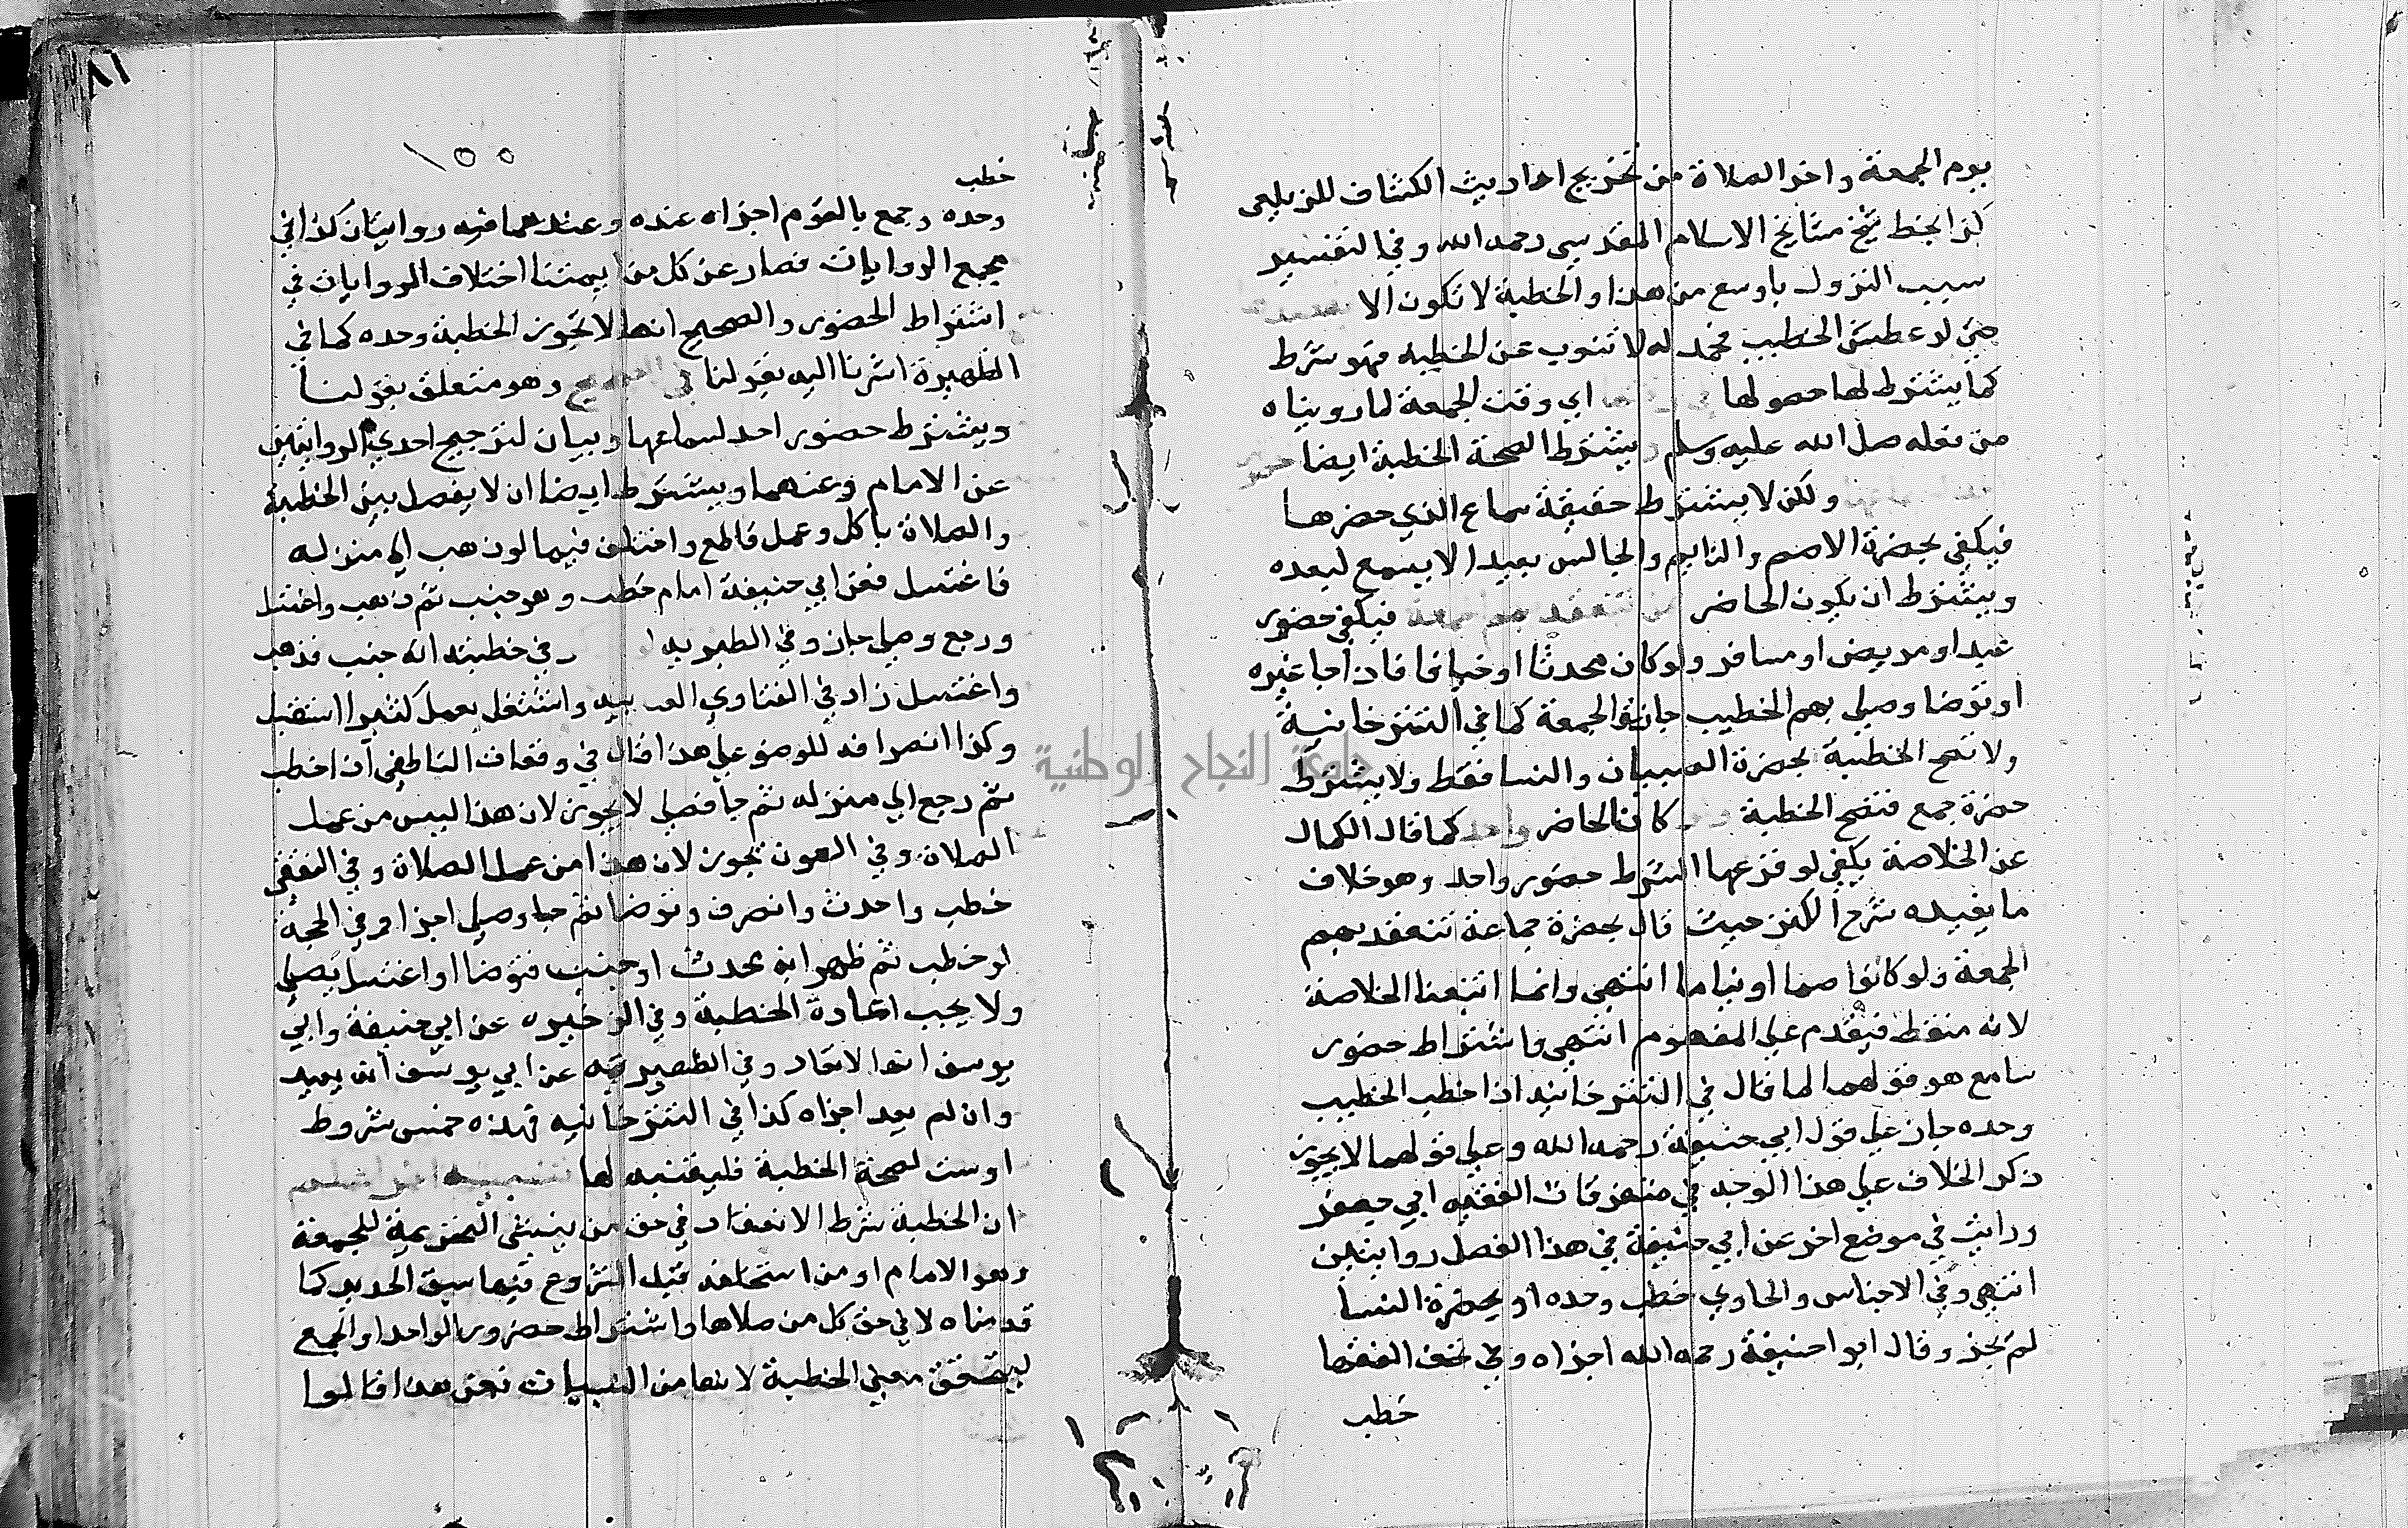 يوم الجمعة واخر الصلاة من تخريج احاديث الكشاف للزيلعى
كذا بخط شيخ مشايخ الاسلام المقدسي رحمه الله وفي التفسير
سبب النزول باوسع من هذا والخطبة لا تكون الا
حتى لو عطس الخطيب فحمد له لا تنوب عن الخطبة فهو شرط
كما يشترط لها حصولها اي وقت الجمعة لما رويناه
من فعله صلى الله عليه وسلم ويشترط لصحة الخطبة ايضا
ولكن لا يشترط حقيقة سماع الذي حضرها
فيكفي بحضرة الاصم والنايم والجالس بعيدا لا يسمع لبعده
ويشترط ان يكون الحاضر تنعقد بهم جمعة فيكفي حضور
عبد او مريض او مسافر ولو كان محدثا او جنبا فاذا جا غيره
او توضا وصلى بهم الخطيب جازت الجمعة كما في التترخانية
ولا تصح الخطبة بحضرة الصبيان والنسا فقط ولا يشترط
حضرة جمع فتصح الخطبة ولو كان الحاضر واحد كما قال الكمال
عن الخلاصة يكفي لوقوعها الشرط حضور واحد وهو خلاف
ما يفيده شرح الكنز حيث قال بحضرة جماعة تنعقد بهم
الجمعة ولو كانوا صما او نياما انتهى وانما اتبعنا الخلاصة
لانه منطق فيقدم على المفهوم انتهى واشتراط حضور
سامع هو قولهما لما قال في التترخانيه اذا خطب الخطيب
وحده جاز على قول ابي حنيفة رحمه الله وعلى قولهما لا يجوز
ذكر الخلاف على هذا الوجه في متفرقات الفقيه ابي جعفر
ورايت في موضع اخر عن ابي حنيفة في هذا الفصل روايتين
انتهى وفي الاجناس والحاوي خطب وحده او بحضرة النسا
لم يجز وقال ابوا حنيفة رحمه الله اجزاه وفي الفقها
خطب
٨١
١٥٥
خطب
وحده وجمع بالقوم اجزاه عنده وعندهما فيه روايتان كذا في
مجمع الروايات فصار عن كل من ايمتنا اختلاف الروايات في
اشتراط الحضور والصحيح انها لا تجوز الخطبة وحده كما في
الظهيرة اشرنا اليه بقولنا في الصحيح وهو متعلق بقولنا
ويشترط حضور احد لسماعها وبيان لترجيح احدى الروايتين
عن الامام وعنهما ويشترط ايضا ان لا يفصل بين الخطبة
والصلاة باكل وعمل قاطع واختلف فيما لو ذهب الى منزله
فاغتسل فعن ابي حنيفة امام خطب وهو جنب ثم ذهب واغتسل
ورجع وصلى جاز وفي في خطبته انه جنب فذهب
واغتسل زاد في الفتاوي واشتغل بعمل كثير استقبل
وكذا انصرافه للوضو على هذا قال في وقعات الناطفي اذا خطب
ثم رجع الى منزله ثم جا فصلى لا يجوز لان هذا ليس من عمل
الصلاة وفي العون تجوز لان هذا من عمل الصلاة وفي
خطب واحدث وانصرف وتوضا ثم جا وصلى اجزاه وفي الحجة
لو خطب ثم ظهر انه محدث او جنب فتوضا او اغتسل يصلي
ولا يجب اعادة الخطبة وفي الذخيره عن ابي حنيفة وابي
يوسف انها لا تعاد وفي الظهيريه عن ابي يوسف انه يعيد
وان لم يعد اجزاه كذا في التترخانيه فهذه خمس شروط
اوست لصحة الخطبة فليتنبه لها تنبيه اخر اعلم
ان الخطبة شرط الانعقاد في حق من ينشئ التحريمة للجمعة
وهو الامام او من استخلفه قبل الشروع فيما سبق الحديد كما
قدمناه لا في حق كل من صلاها واشتراط حضور الواحد او الجمع
ليتحقق معنى الخطبة لانها من النسبيات فعن هذا قالوا
جامعة النجاح الوطنية